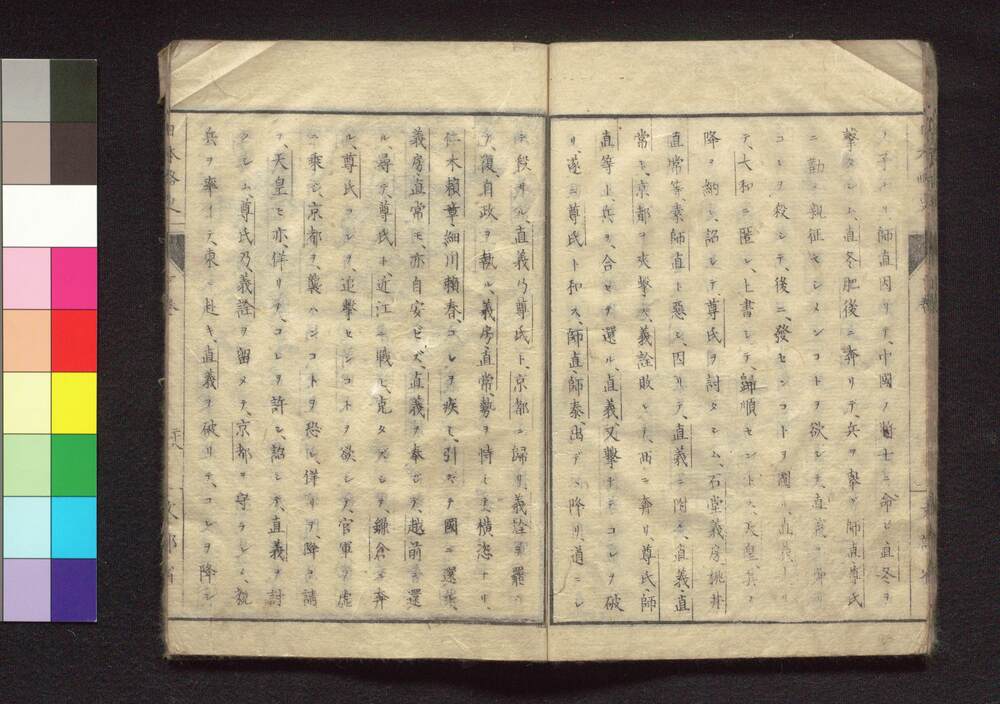 師直因リテ、中國ノ將士ニ命ジ、直冬ヲ
撃タシム、直冬肥後ニ奔リテ、兵ヲ擧グ、師直尊氏
ニ勸メ親征セシメンコトヲ欲シテ、直義
コレヲ殺シテ、後ニ發センコトヲ圖リ、直義
テ、大和ニ匿レ、上書シテ、歸順センコトヲ、天皇、其
降ヲ納レ、詔シテ、尊氏ヲ討タシム、石堂義房、桃井
直常等、素師直ト惡シ、因リテ、直義ニ附ク、直義、直
常ト、京都ヲ夾撃ス、義詮敗レテ、西ニ奔リ、尊氏、師
直等ト、兵ヲ合セテ還ル、直義、又撃チテコレヲ破
リ、遂ニ尊氏ト和ス、師直、師泰、出デヽ降リ、道ニシ
テ殺サル、直義乃尊氏ト、京都ニ歸リ、義詮
テ、復、自政ヲ執ル、義房、直常、勢ヲ恃ミテ、横恣ナリ、
仁木賴章、細川賴春、コレヲ疾ミ、引キテ國ニ還
義房直常モ、亦自安ゼズ、直義ヲ奉ジテ、越前ニ還
ル、尋テ、尊氏ト、近江ニ戰ヒ、克タズシテ、鎌倉ニ奔
ル、尊氏コレヲ、追撃センコトヲ欲シテ、官軍ノ虚
ニ乘ジ、京都ヲ、襲ハンコトヲ恐レ、佯リテ、降ヲ請
フ、天皇モ亦、佯リテ、コレヲ許シ、詔シテ、直義ヲ討
タシム、尊氏乃、義詮ヲ留メテ、京都ヲ守ラシメ、親
兵ヲ率イテ、東ニ赴キ、直義ヲ破リテ、コレヲ降シ